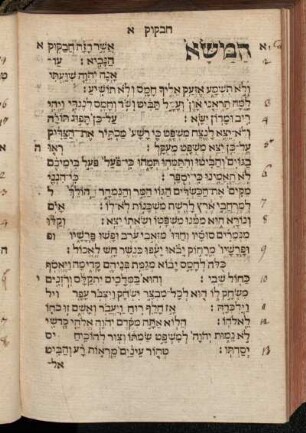 חבקוק א
המשא אשר חזה חבקוק א
הנביא: עד־
אנה יהוה שועתי
ולא תשמע אזעק אליך חמס ולא תושיע:
למה תראני און ועמל תביט ושד וחמס לנגדי ויהי
ריב ומדון ישא: על־כן תפוג תורה
ולא־יצא לנצח משפט כי רשע מכתיר את־הצדיק
על־כן יצא משפט מעקל: ראו ה
בגוים והביטו והתמהו תמהו כי־פעל פעל בימיכם
לא תאמינו כי־יספר: כי־הנני
מקים את־הכשדים הגוי המר והנמהר ההולך ל
ארץ לרשת משכנות לא־לו: אים
ונורא הוא ממנו משפטו ושאתו יצא: וקלו
מנמרים סוסיו וחדו מזאבי ערב ופשו פרשיו ו
ופרשיו מרחוק יבאו יעפו כנשר חש לאכול:
כלה לחמס יבוא מגמת פניהם קדימה ויאסף
כחול שבי: והוא במלכים יתקלס ורזנים י
משחק לו הוא לכל־מבצר ישחק ויצבר עפר ויל
וילכדה: אז חלף רוח ויעבר ואשם זו כחו
לאלהו: הלוא אתה מקדם יהוה אלהי קדשי
לא נמות יהוה למשפט שמתו וצור להוכיח יס
יסדתו: טהור עינים מראות רע והביט
אל־